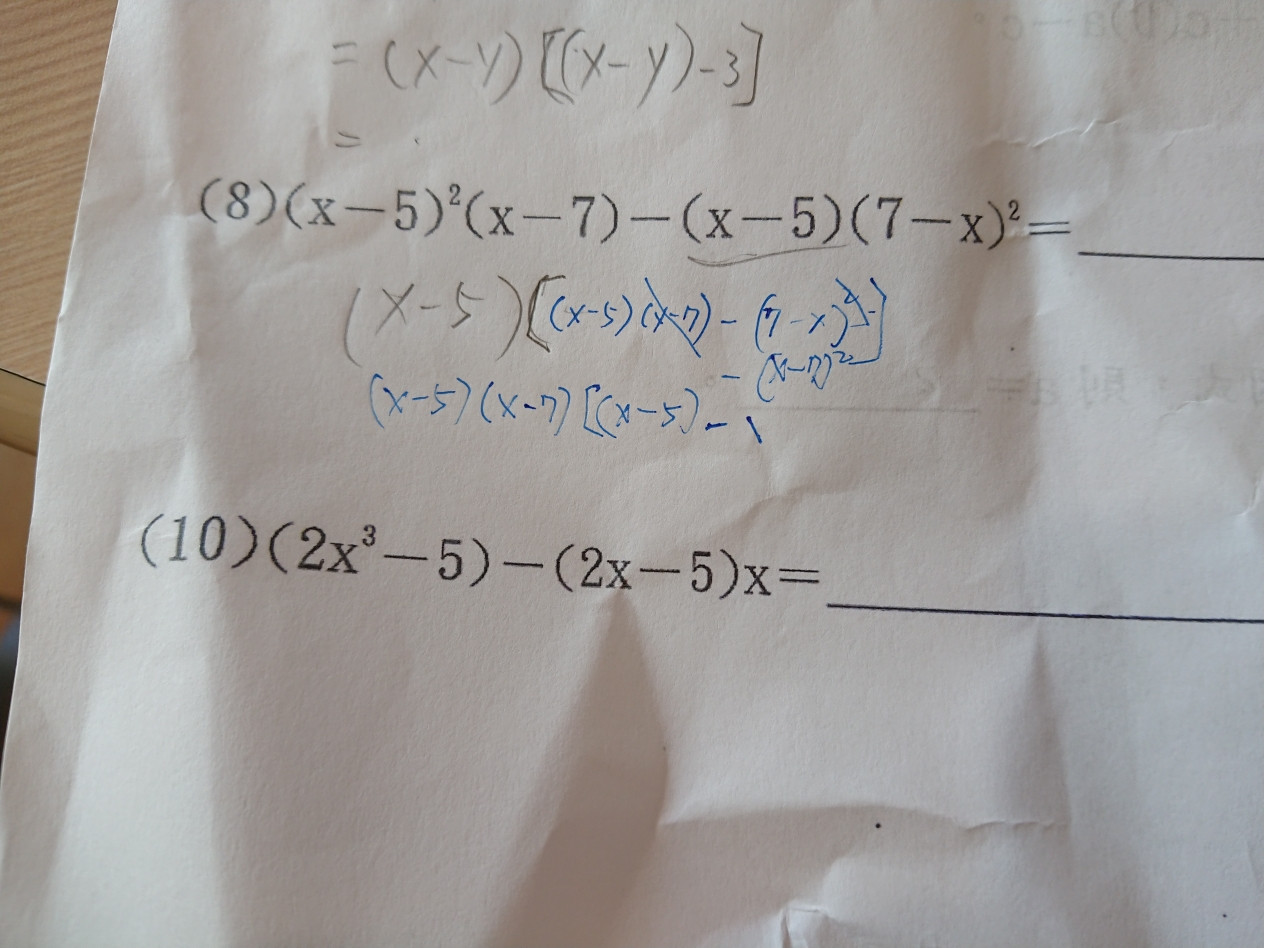 = (x-y)[(x-y)-3]
=
(8)(x-5)²(x-7)-(x-5)(7-x)²=
(x-5)[(x-5)(x-7)-(7-x)²]
-(x-7)²
(x-5)(x-7)[(x-5)-
(10)(2x³-5)-(2x-5)x=